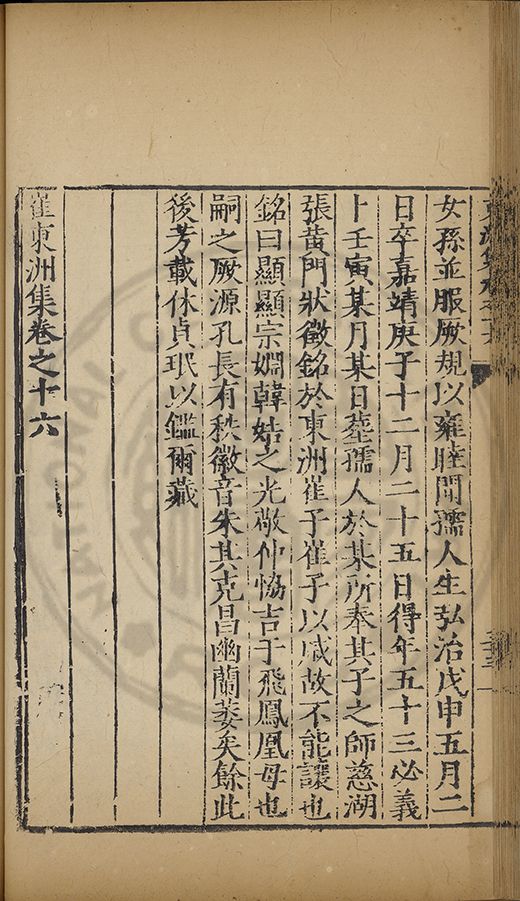 東洲集卷之十六
女孫並服厥規以雍睦聞孺人生弘治戊申五月二
日卒嘉靖庚子十二月二十五日得年五十三必義
卜壬寅某月某日塟孺人於某所奉其子之師慈湖
張黃門狀徵銘於東洲崔子崔子以戚故不能讓也
銘曰顯顯宗嫺韓姞之光敬仲恊吉于飛鳳凰母也
嗣之厥源孔長有秩徽音朱其克昌幽蘭萎矣餘此
後芳載休貞珉以鑑爾藏
崔東洲集卷之十六